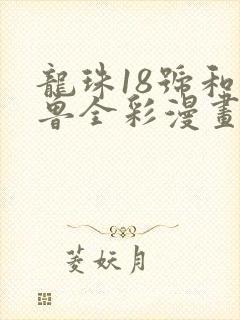 龍珠18號和
兽全彩漫畫
菱妖月